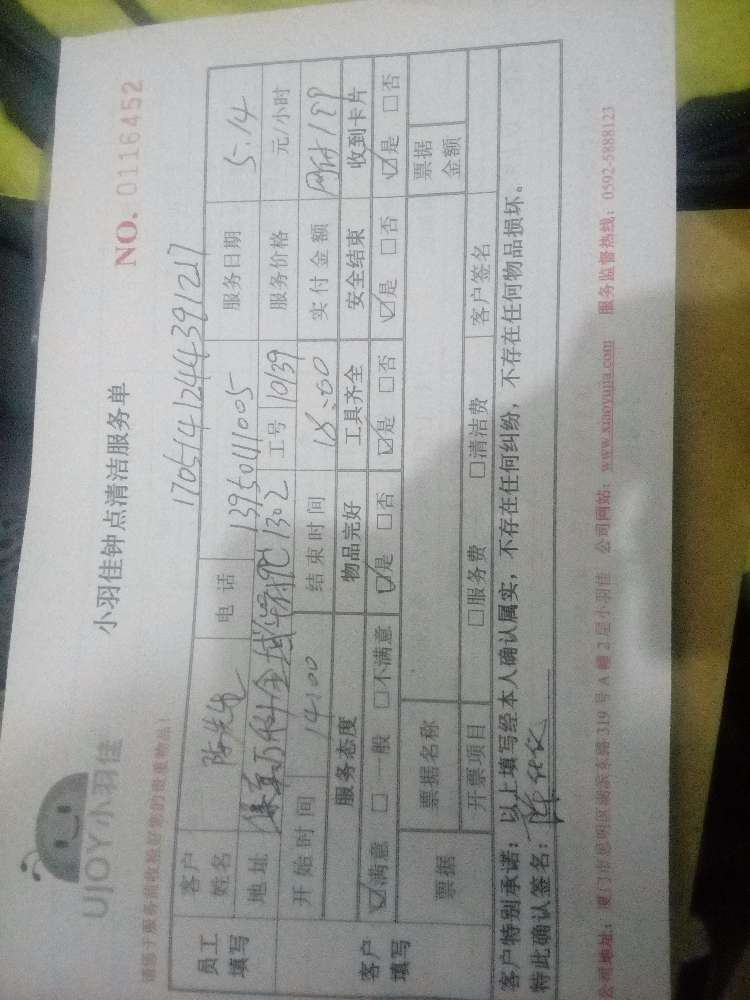 UJOY小羽佳
小羽佳钟点清洁服务单
NO. 0116452
请客户服务前收检好您的贵重物品!
17051412444391217
员工填写
客户姓名 陈先生 电话 13950111005 服务日期 5.14
地址 万科金域华府 1302 工号 10139 服务价格 元/小时
开始时间 14:00 结束时间 18:00 实付金额 199
客户填写
服务态度 物品完好 工具齐全 安全结束 收到卡片
☑满意 □一般 □不满意 ☑是 □否 ☑是 □否 ☑是 □否 ☑是 □否
票据 票据名称 票据金额
开票项目 □服务费 □清洁费 客户签名
客户特别承诺:以上填写经本人确认属实,不存在任何纠纷,不存在任何物品损坏。
特此确认签名:
公司地址:厦门市思明区湖滨东路319号A幢2层小羽佳 公司网站:www.xiaoyujia.com 服务监督热线:0592-5888123